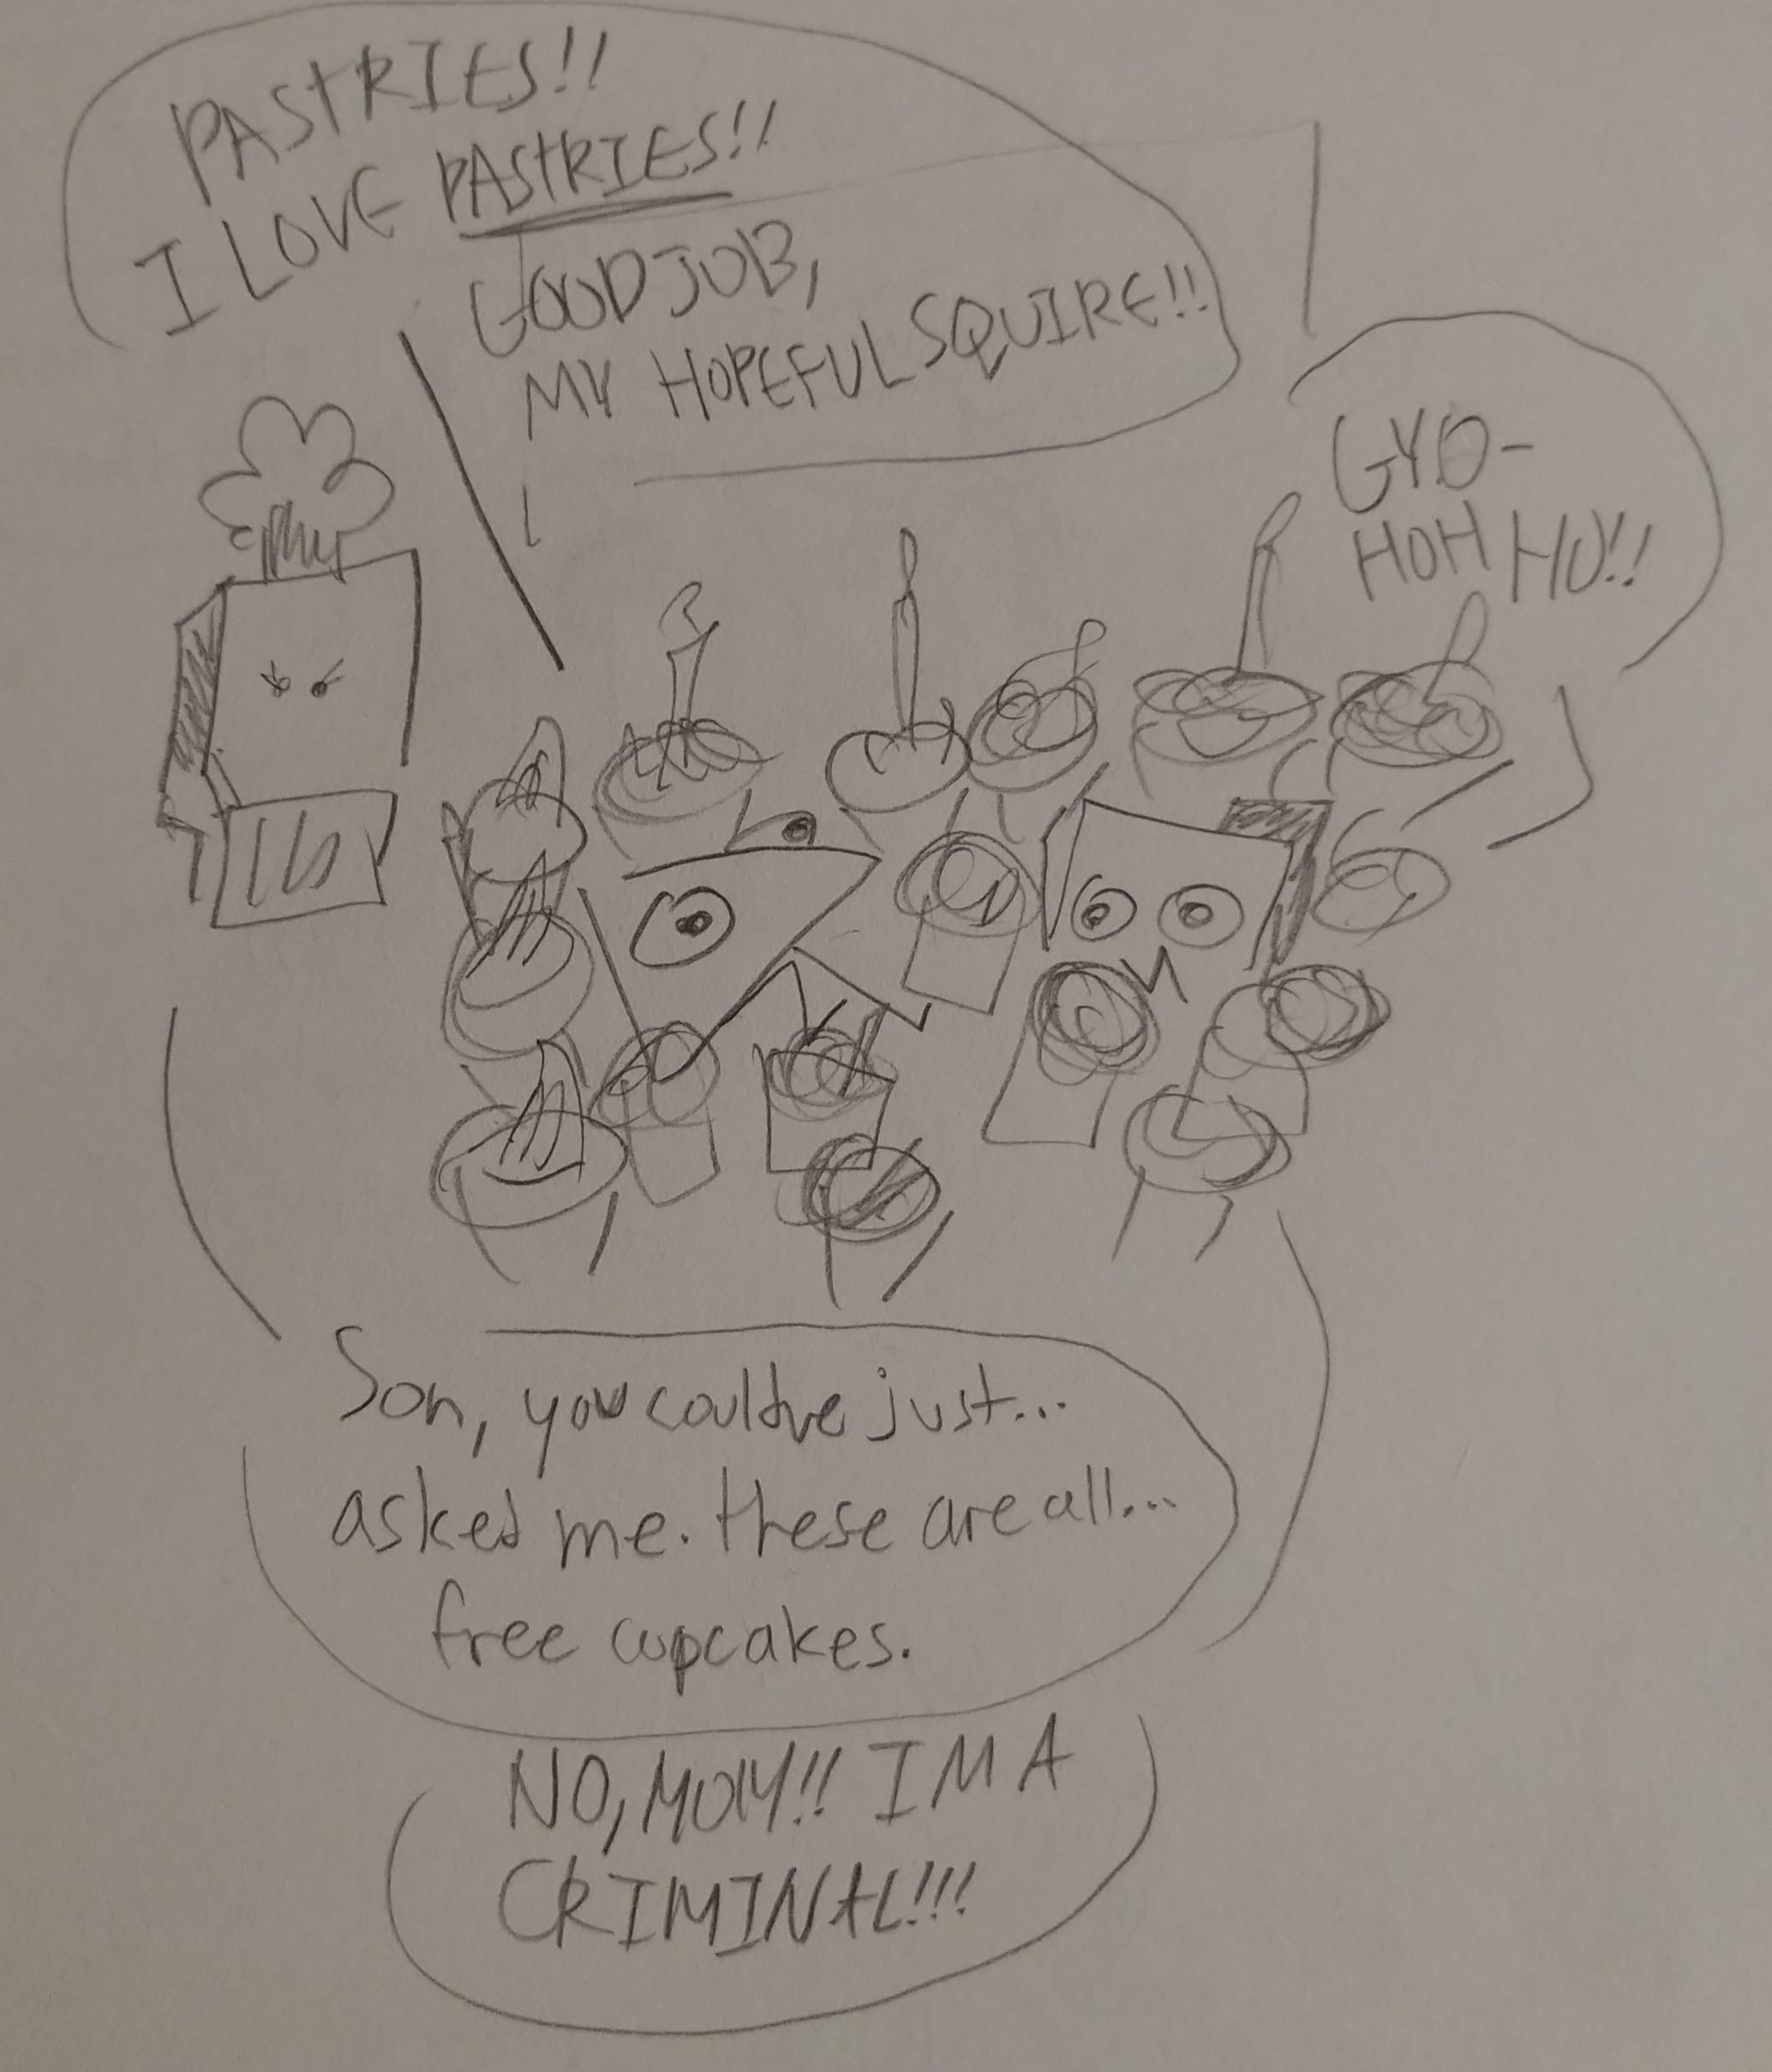 PASTRIES!!
I LOVE PASTRIES!!
GOOD JOB,
MY HOPEFUL SQUIRE!!
GYO-
HOH HO!!
Son, you could've just...
asked me. these are all...
free cupcakes.
NO, MOM!! IM A
CRIMINAL!!!